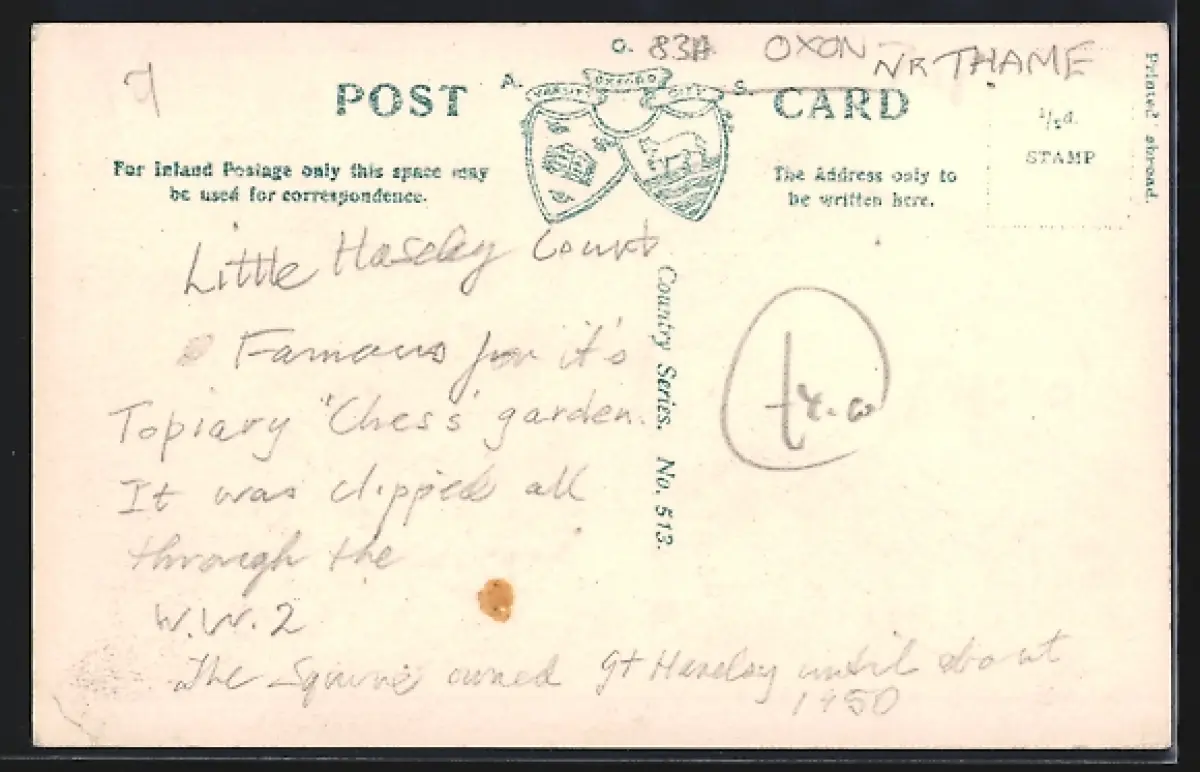 O. 83A OXON NR THAME
POST A. VARSITY OXFORD CITY S. CARD
For Inland Postage only this space may
be used for correspondence.
The Address only to
be written here.
1/2d.
STAMP
Printed abroad.
Little Haseley Court
Famous for it's
Topiary "Chess" garden.
It was clipped all
through the
W.W.2
The Squire owned Gt Haseley until about
1950
Country Series. No. 513.